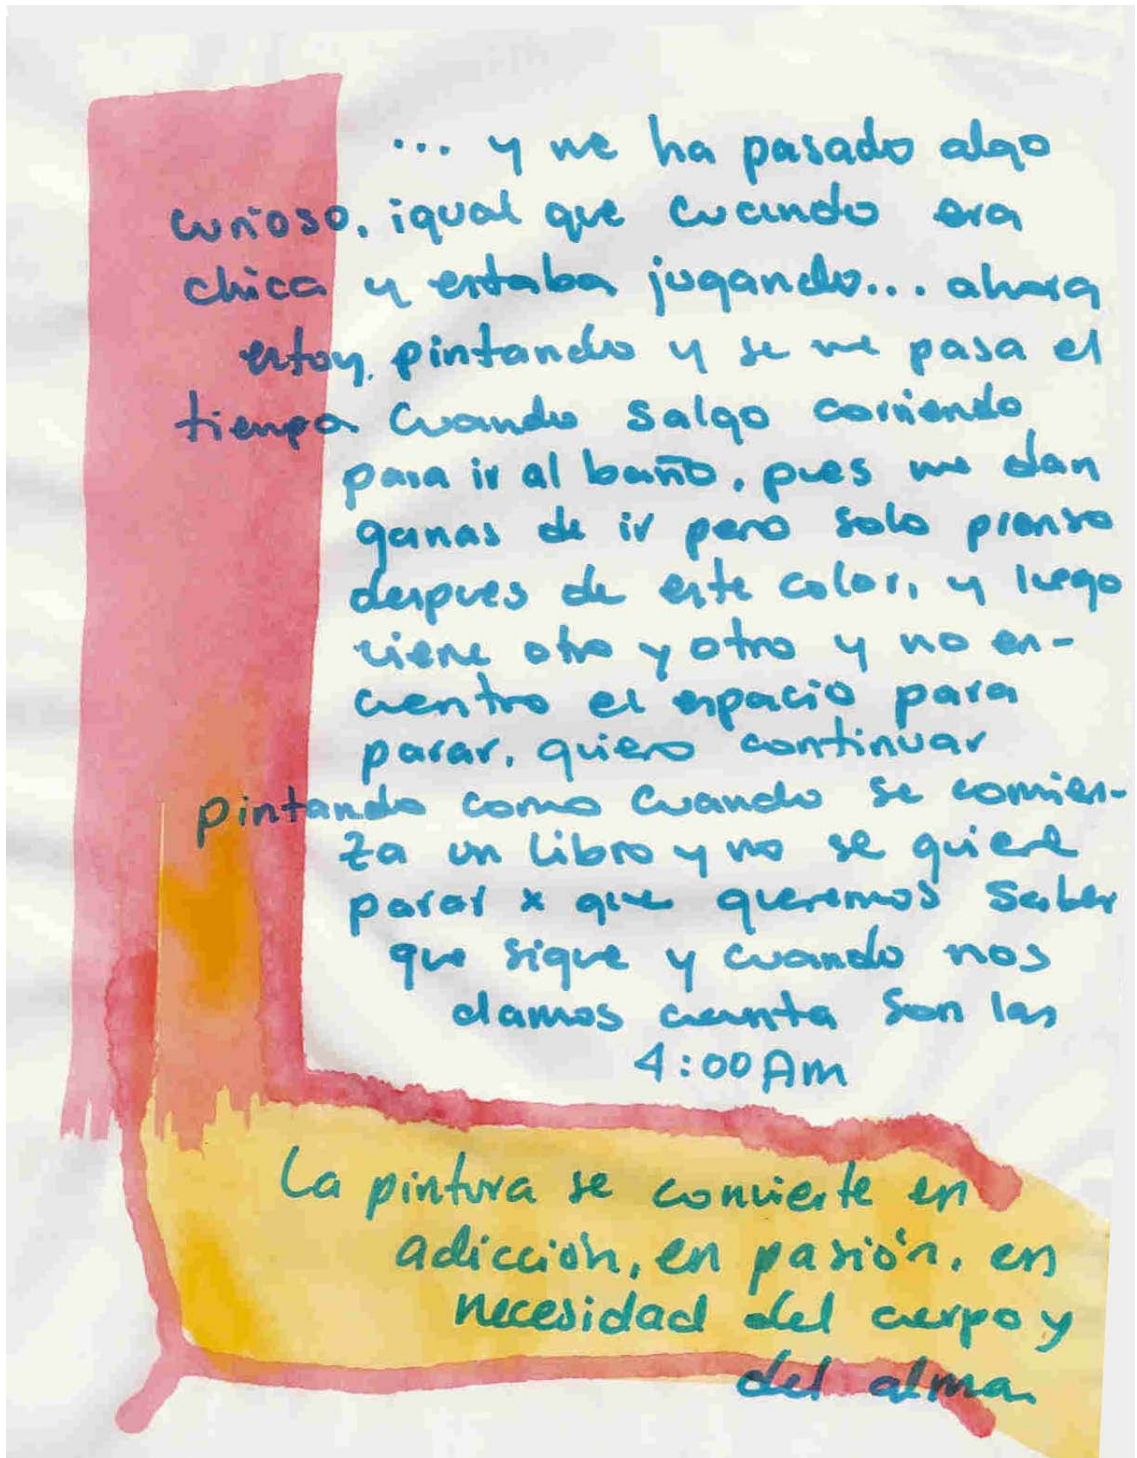 ... y me ha pasado algo
curioso, igual que cuando era
chica y estaba jugando... ahora
estoy pintando y se me pasa el
tiempo cuando salgo corriendo
para ir al baño, pues me dan
ganas de ir pero solo pienso
despues de este color, y luego
viene otro y otro y no en-
cuentro el espacio para
parar, quiero continuar
pintando como cuando se comien-
za un libro y no se quiere
parar x que queremos saber
que sigue y cuando nos
damos cuenta son las
4:00 Am
La pintura se convierte en
adicción, en pasión, en
necesidad del cuerpo y
del alma.